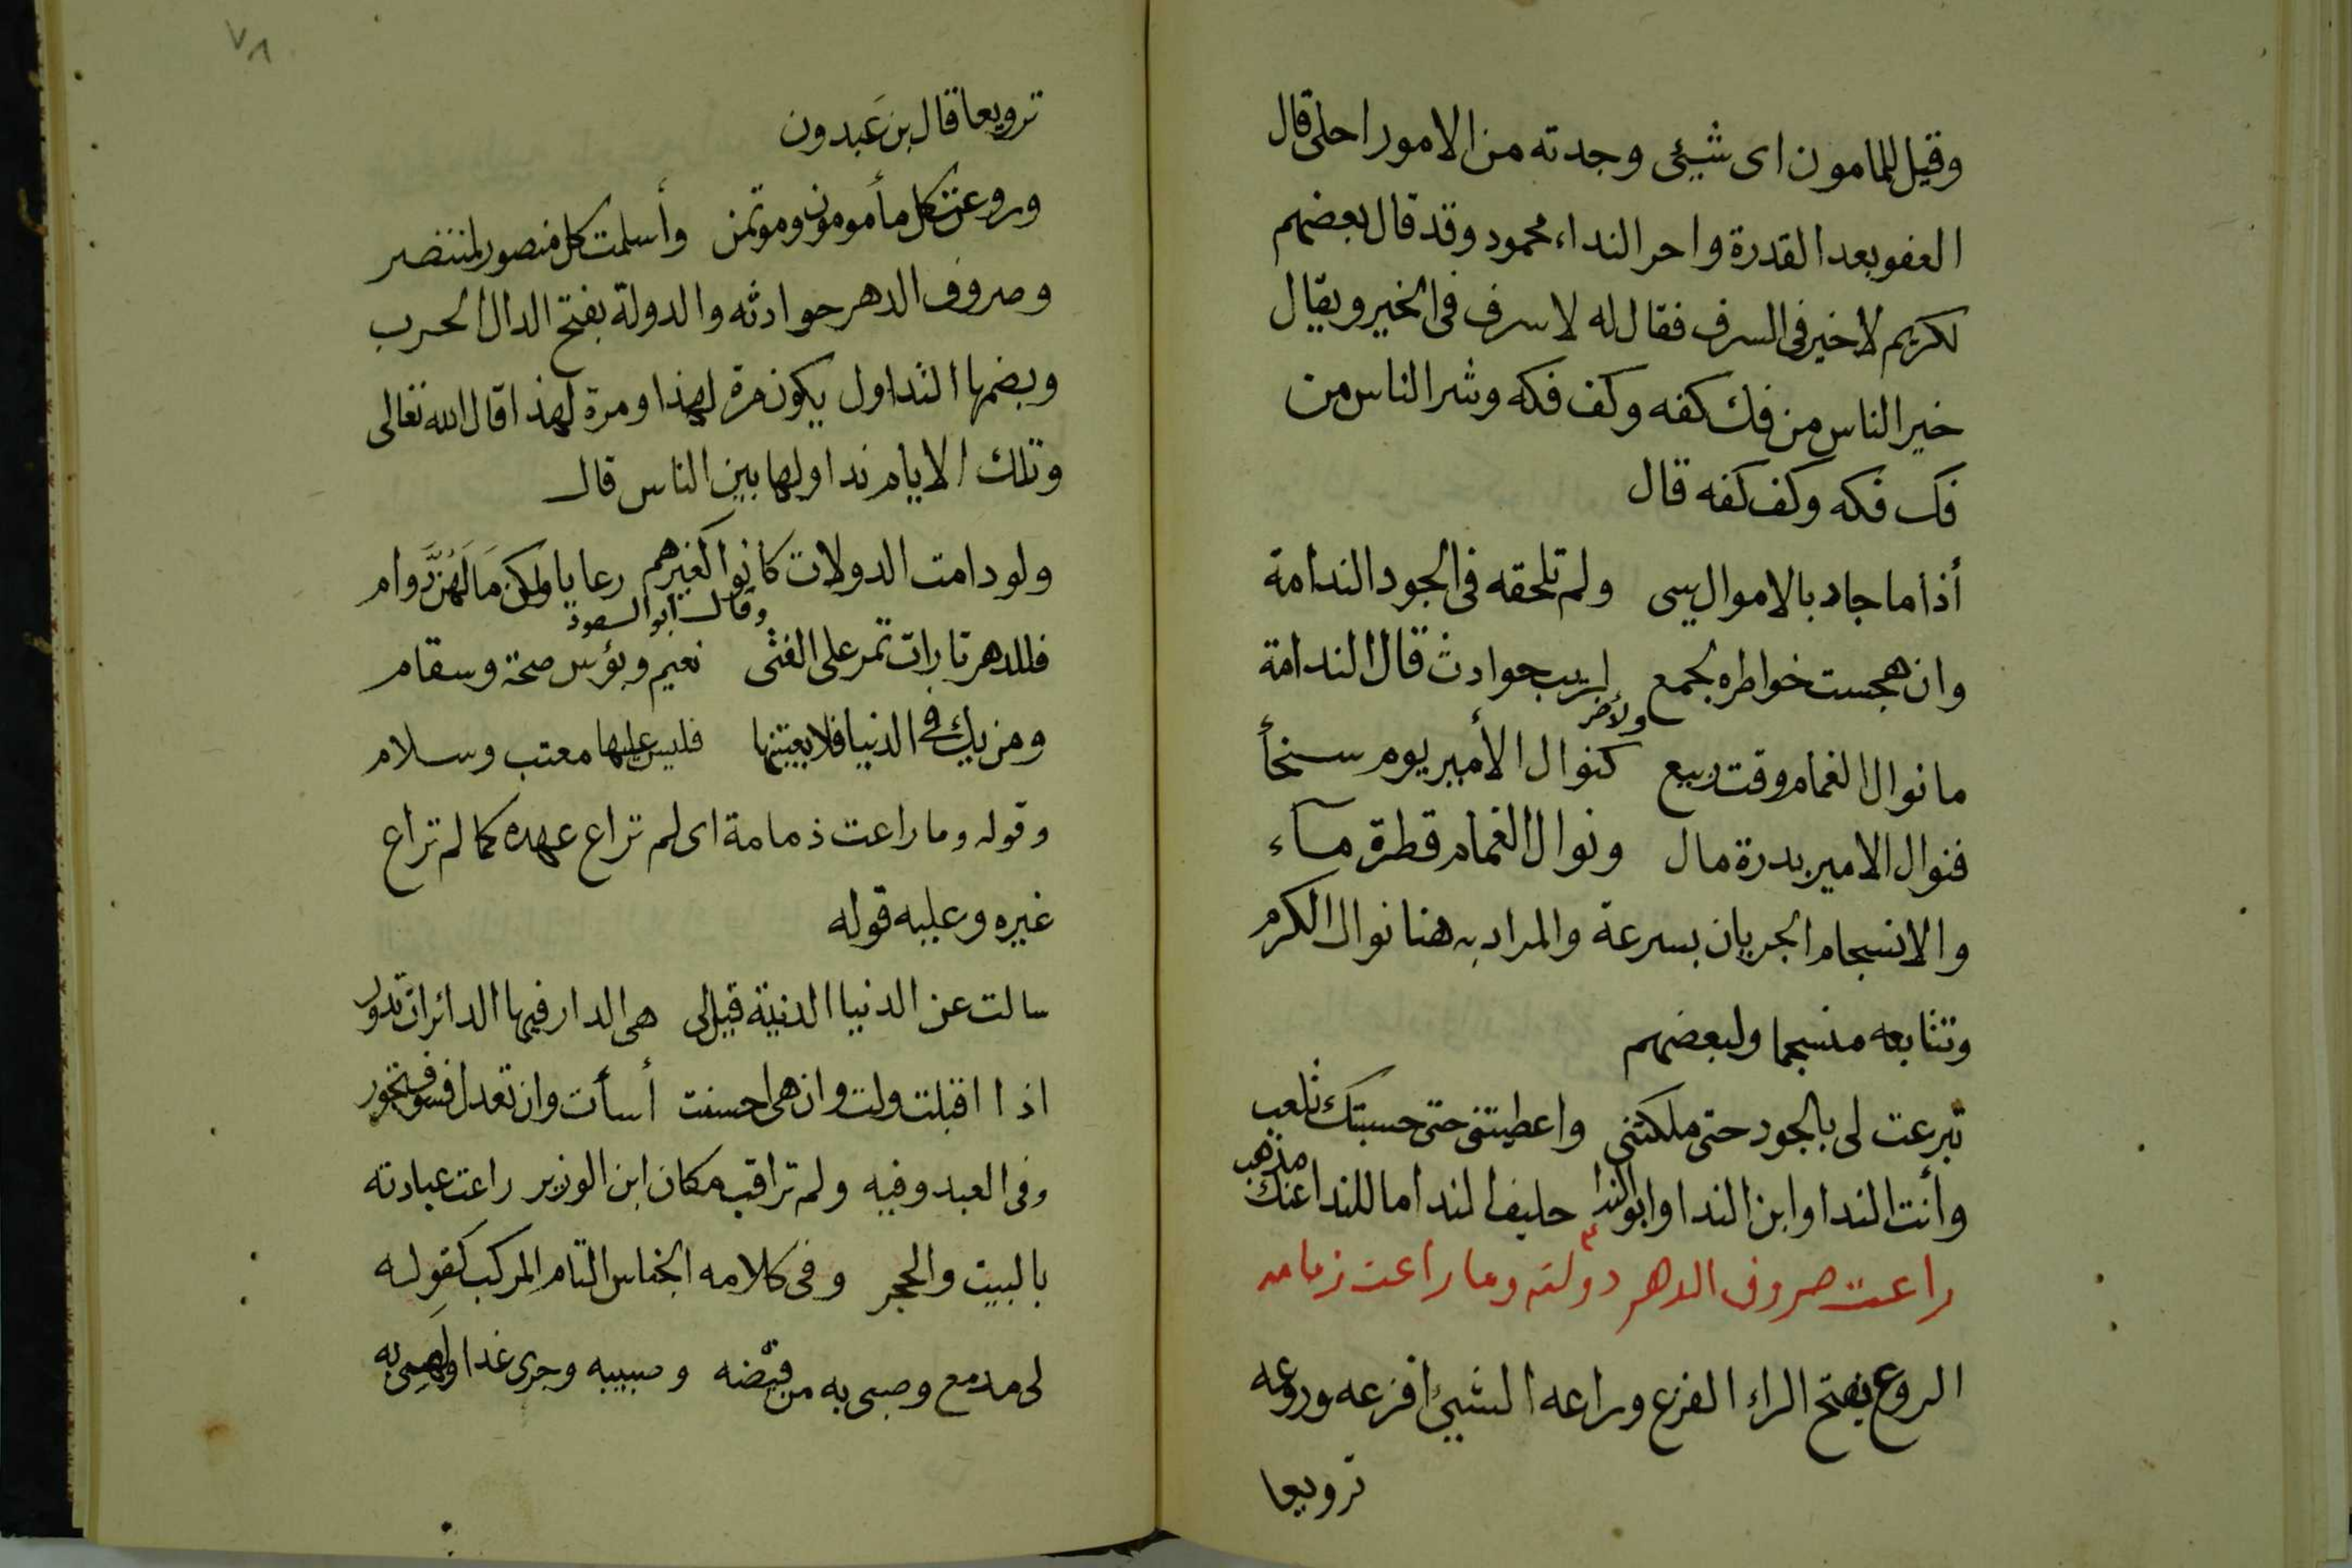 وقيل للمامون اى شيئى وجدته من الامور احلى قال
العفو بعد القدرة واحر النداء محمود وقد قال بعضهم
لكريم لا خير فى السرف فقال له لا سرف فى الخير ويقال
خير الناس من فك كفه وكف فكه وشر الناس من
فك فكه وكف كفه قال
أذا ما جاد بالاموال يسى ولم تلحقه فى الجود الندامة
وان هجست خواطره بجمع لريب حوادث قال الندامة
ولاخر
ما نوال الغمام وقت ربيع كنوال الأمير يوم سخأ
فنوال الامير بدرة مال ونوال الغمام قطرة مآء
والانسجام الجريان بسرعة والمراد به هنا نوال الكرم
وتتابعه منسجما ولبعضهم
تبرعت لى بالجود حتى ملكتنى واعطيتنى حتى حسبتك تلعب
وأنت الندا وابن الندا وابو الندا حليف الندا ما للندا عنك مذهب
راعت صروف الدهر دولته وما راعت زمامه
الروع بفتح الراء الفزع وراعه الشيئ افزعه وروعه
ترويعا
٧٨
ترويعا قال بن عَبدون
وروعت كل مأمومون وموتمن وأسلمت كل منصور لمنتضر
وصروف الدهر حوادثه والدولة بفتح الدال الحرب
وبضمها التداول يكون مرة لهذا ومرة لهذا قال الله تعالى
وتلك الايام نداولها بين الناس قال
ولو دامت الدولات كانوا كغيرهم رعايا ولكن مَا لَهُنَّ دَوام
وقال ابو السعود
فللدهر تارات تمر على الفتى نعيم وبؤس صحة وسقام
ومن يك فى الدنيا فلا يعتبنها فليس عليها معتب وسلام
وقوله وما راعت ذمامة اى لم تراع عهده كما لم تراع
غيره وعليه قوله
سالت عن الدنيا الدنية قيل لى هى الدار فيها الدائرات تدور
اذا اقبلت ولت وان هى احسنت أسأت وان تعدل فسوف تجور
وفى العبد وفيه ولم تراقب مكان ابن الوزير راعت عبادته
بالبيت والحجر وفى كلامه الجناس التام المركب كقوله
لى مدمع وصبى به من فيضه وصبيبه وجرى غدا ولهيبى به